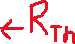 ←R_Th